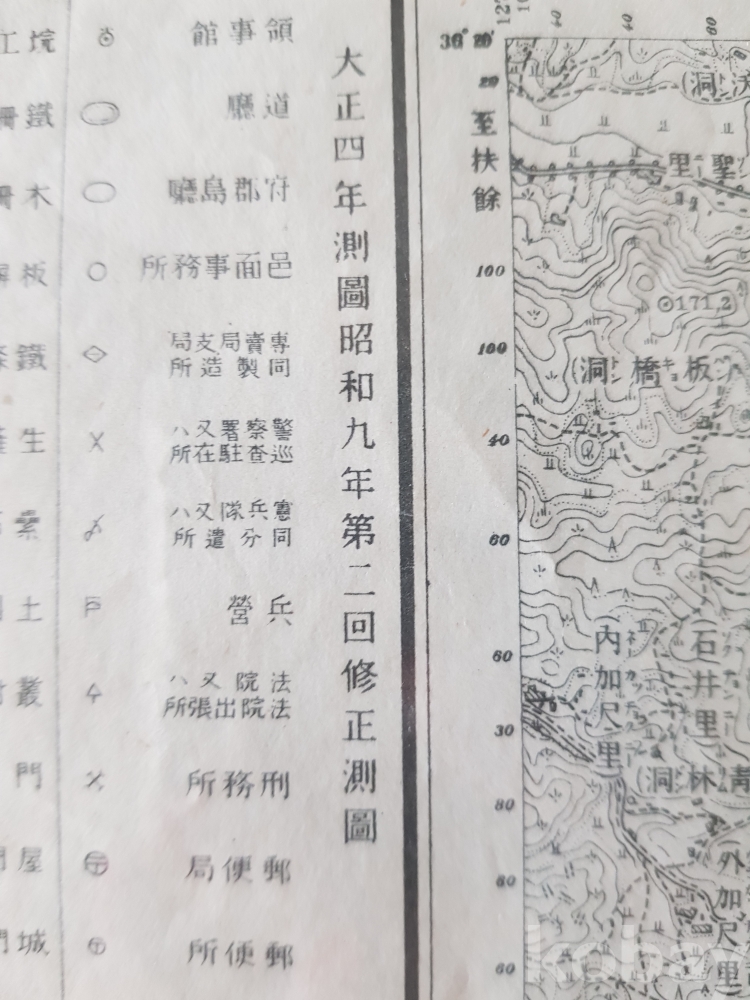 大正四年測圖昭和九年第二回修正測圖
領事館
道廳
府郡島廳
邑面事務所
專賣局支局
同製造所
警察署又ハ
巡査駐在所
憲兵隊又ハ
同分遣所
兵營
法院又ハ
法院出張所
刑務所
郵便局
郵便所
鐵
木
板
鐵
生
土
叢
門
屋
城
36°20′
至扶餘
20
100
100
40
60
60
30
80
80
60
40
40
60
洞
聖里
171.2
板橋洞
石井里
內加尺里
靑林洞
外加尺里